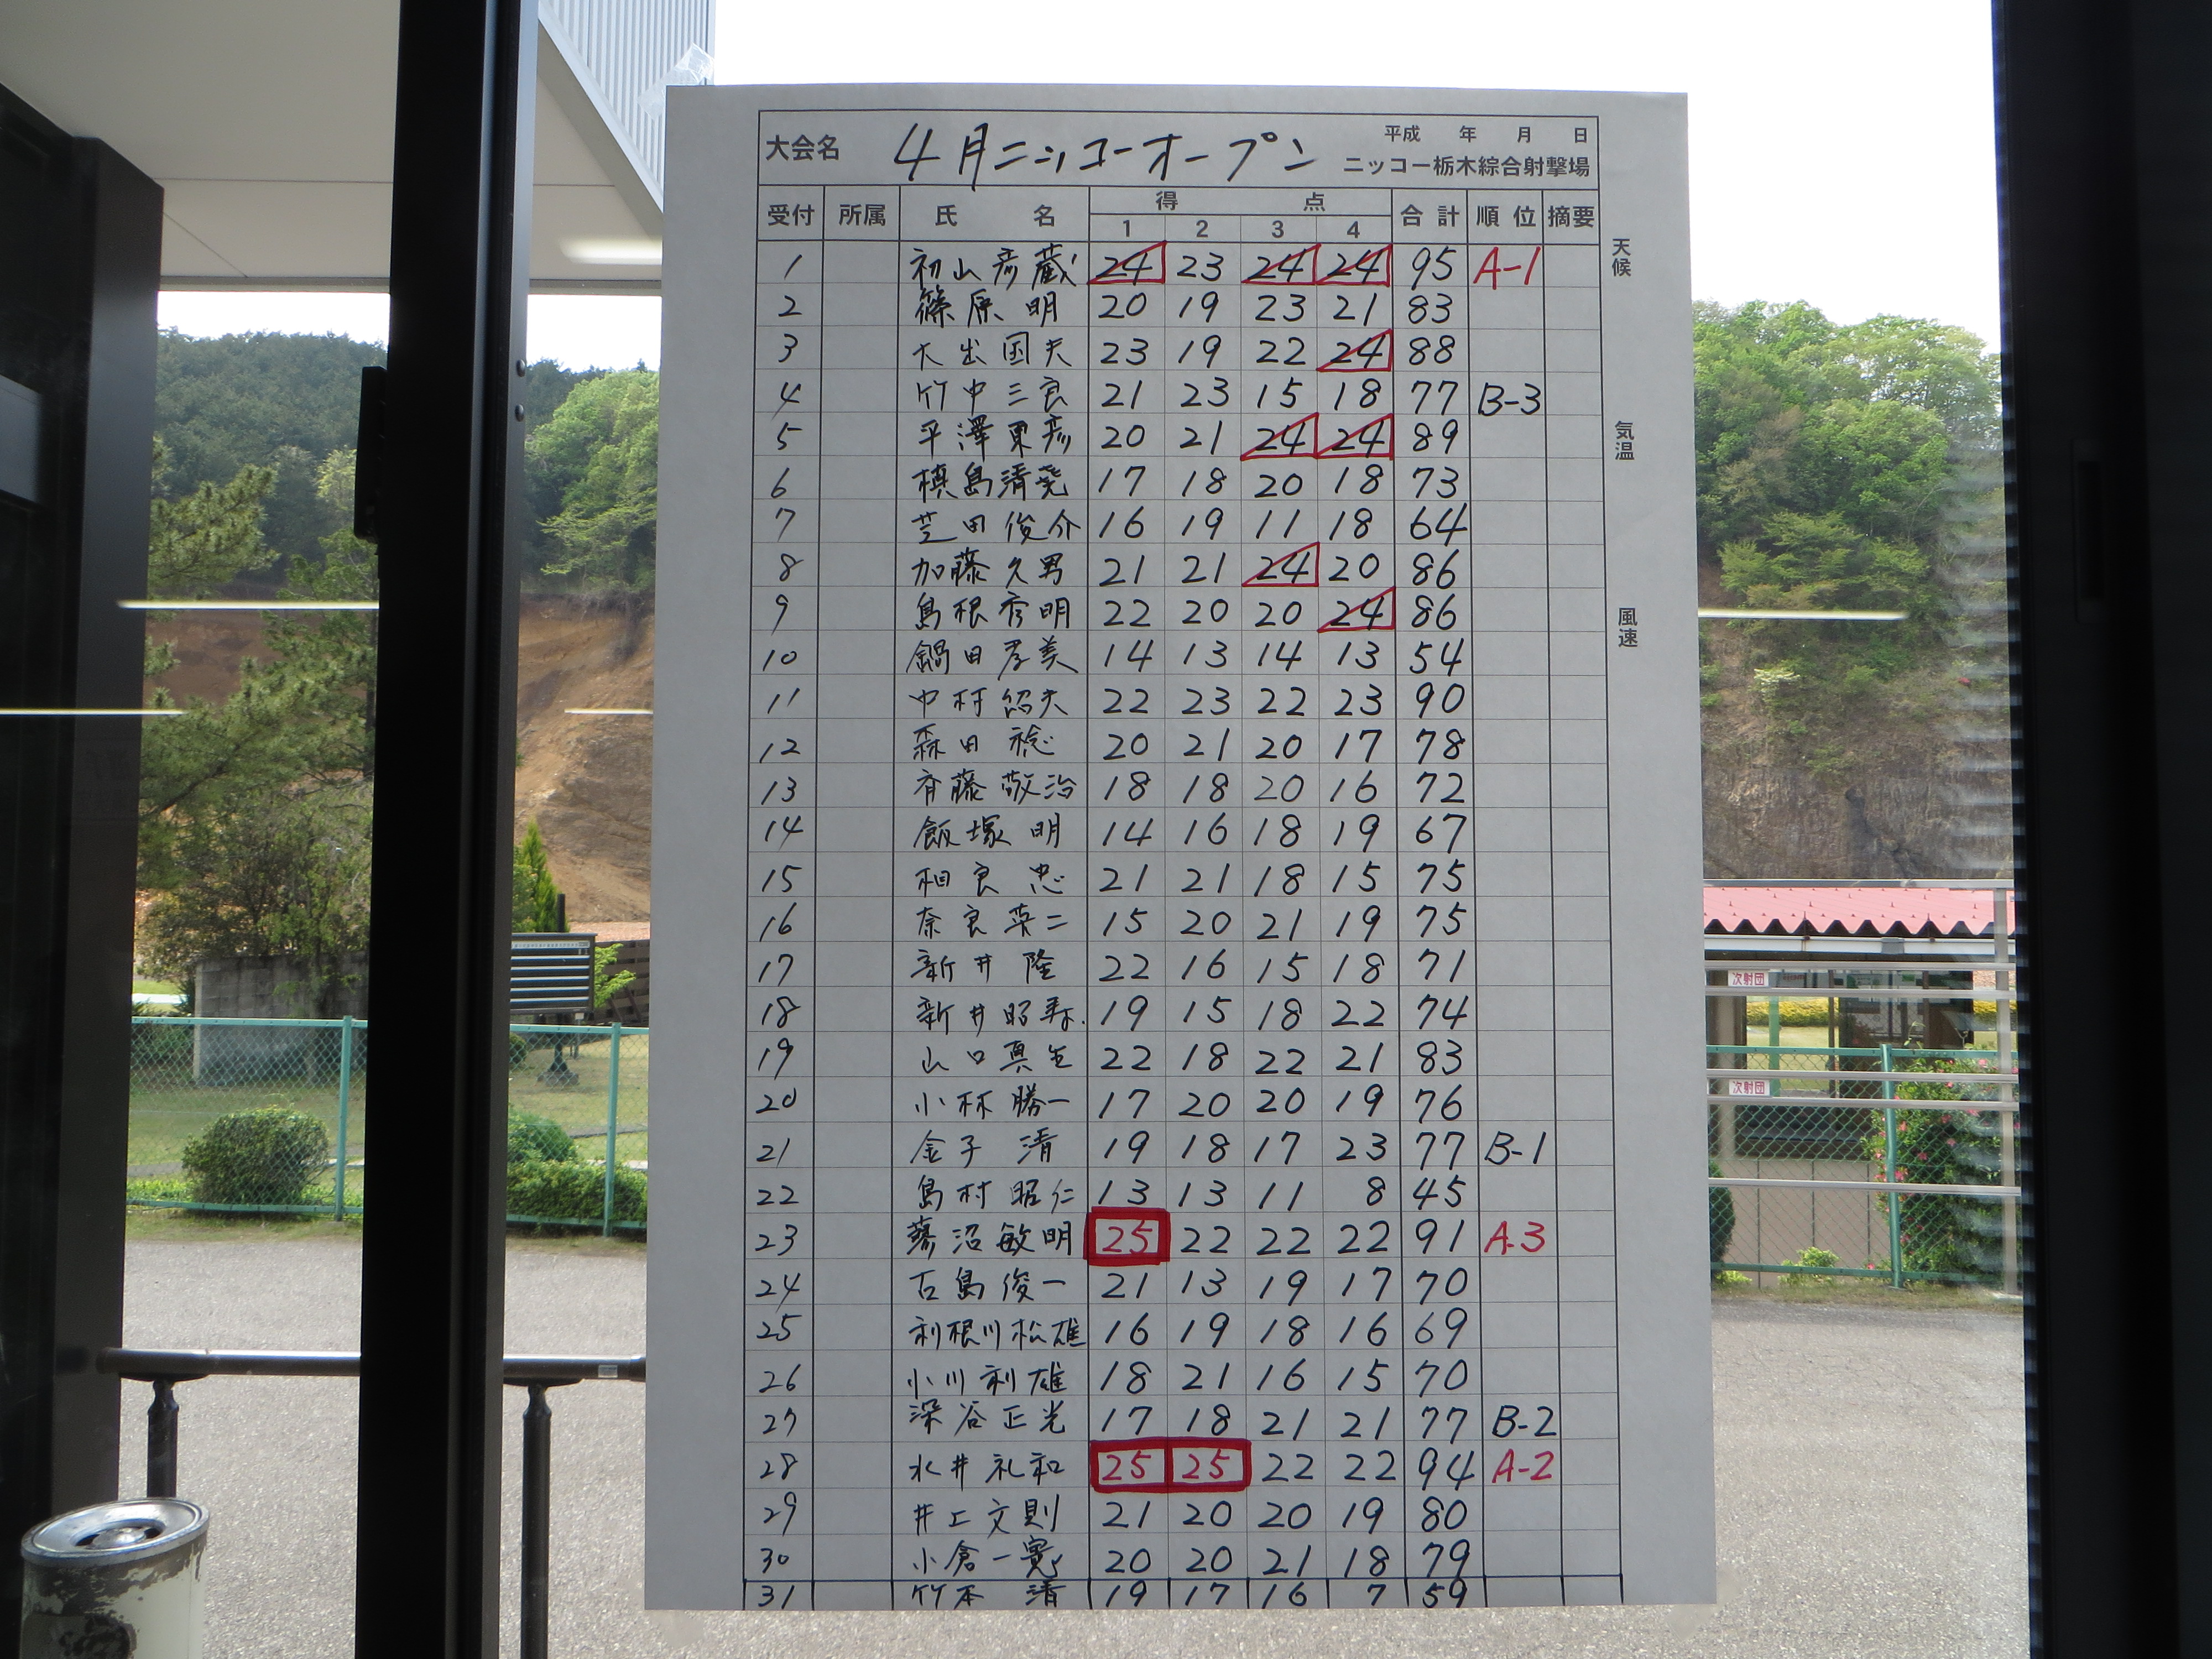 大会名 4月ニッコーオープン 平成 年 月 日
ニッコー栃木綜合射撃場
受付 所属 氏 名 得 点 合計 順位 摘要
1 2 3 4
1 初山彦蔵 24 23 24 24 95 A-1
2 篠原明 20 19 23 21 83
3 大出国夫 23 19 22 24 88
4 竹中三良 21 23 15 18 77 B-3
5 平澤東彦 20 21 24 24 89
6 槙島清 17 18 20 18 73
7 芝田俊介 16 19 11 18 64
8 加藤久男 21 21 24 20 86
9 島根秀明 22 20 20 24 86
10 鍋田孝美 14 13 14 13 54
11 中村紹夫 22 23 22 23 90
12 森田稔 20 21 20 17 78
13 斉藤敬治 18 18 20 16 72
14 飯塚明 14 16 18 19 67
15 相良忠 21 21 18 15 75
16 奈良英二 15 20 21 19 75
17 新井隆 22 16 15 18 71
18 新井昭寿 19 15 18 22 74
19 山口真 22 18 22 21 83
20 小林勝一 17 20 20 19 76
21 金子清 19 18 17 23 77 B-1
22 島村昭仁 13 13 11 8 45
23 沼敏明 25 22 22 22 91 A-3
24 古島俊一 21 13 19 17 70
25 利根川松雄 16 19 18 16 69
26 小川利雄 18 21 16 15 70
27 深谷正光 17 18 21 21 77 B-2
28 水井礼和 25 25 22 22 94 A-2
29 井上文則 21 20 20 19 80
30 小倉一寛 20 20 21 18 79
31 竹本清 19 17 16 7 59
天候
気温
風速
次射団
次射団